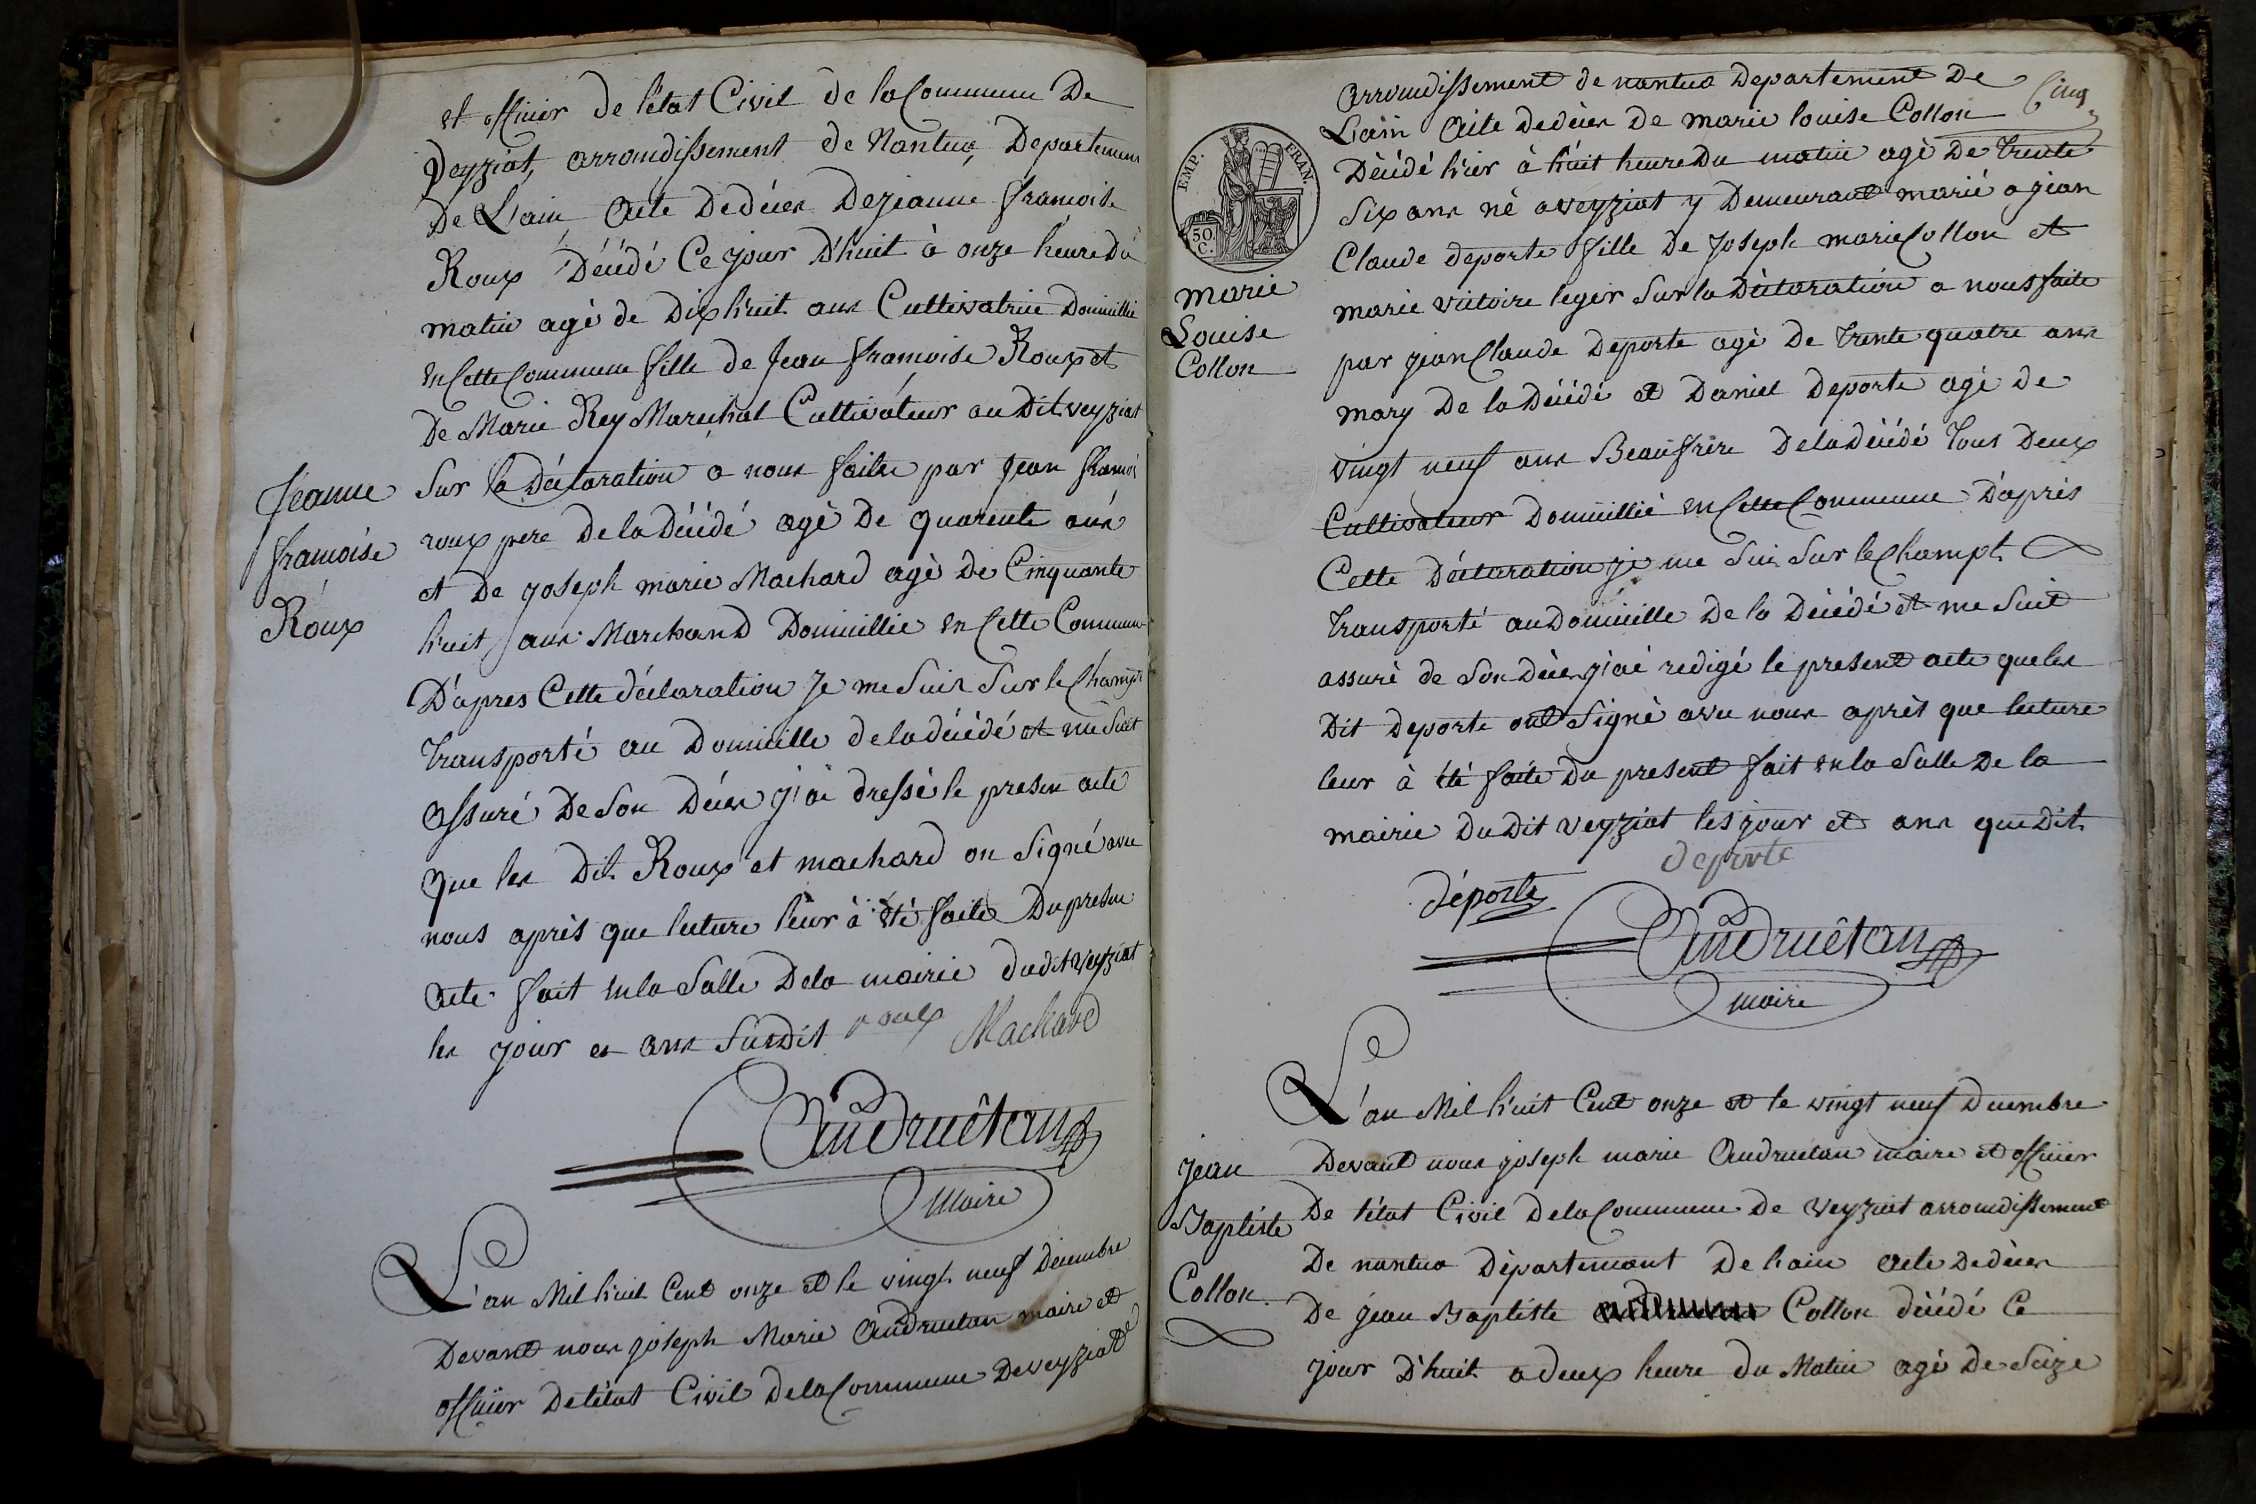 et officier de l'état Civil de la Commune De
Veyziat, arrondissement de Nantua, Departement
De L'ain, acte Dedécès Dejeanne framoise
Roux Décédé Ce jour D'huit à onze heure Du
matin agé de Dix huit ans Cultivatrice Domicillié
en Cette Commune fille de Jean framoise Roux et
De Marie Rey Marechal Cultivateur au Dit veyziat
Jeanne
framoise
Roux
Sur la Déclaration a nous faite par Jean framois
roux pere De la Décédé agé De quarente ans
et De joseph marie Machard agé De Cinquante
huit ans Marchand Domicillié en Cette Commune
D'apres Cette déclaration Je me Suis Sur le Champt
transporté au Domicille de la décédé et me Suit
assuré De Son Décès j'ai dressé le presen acte
Que les Dit Roux et machard on Signé avec
nous après que lecture leur à été faite Du presen
acte fait en la Salle De la mairie du dit veyziat
les jour et ans Susdit roux Machard
Audruêtan
maire
L'an Mil huit Cent onze et le vingt neuf Décembre
Devant nous joseph Marie Audruetan maire et
officier De l'état Civil de la Commune De veyziat
arrondissement de nantua Departement De
L'ain acte dedécès De marie louise Collon
Cinq
EMP. FRAN.
50 C.
marie
Louise
Collon
Décédé hier à huit heure Du matin agé De trente
Six ans né a veyziat y Demeurant marié a jean
Claude deporte fille De joseph marie Collon et
marie victoire leger Sur la Déclaration a nous faite
par jean Claude Deporte agé De trente quatre ans
mary De la Décédé et Daniel Deporte agé de
vingt neuf ans Beaufrère De la Décédé tous Deux
Cultivateur Domicillié en Cette Commune D'après
Cette Déclaration je me Suis Sur le Champt
transporté au Domicille De la Décédé et me Suit
assuré de Son Décès j'ai redigé le present acte que les
Dit deporte ont Signé avec nous après que lecture
leur à été faite Du present fait en la Salle De la
mairie Du Dit veyziat les jour et ans que Dit
deporte
déporte
Audruêtan
maire
L'an Mil huit Cent onze et le vingt neuf Decembre
Devant nous joseph marie Audruetan maire et officier
De l'état Civil De la Commune De veyziat arrondissement
De nantua Département De l'ain acte Dedécès
De jean Baptiste Collon décédé Ce
jour D'huit a deux heure du Matin agé De Seize
jean
Baptiste
Collon